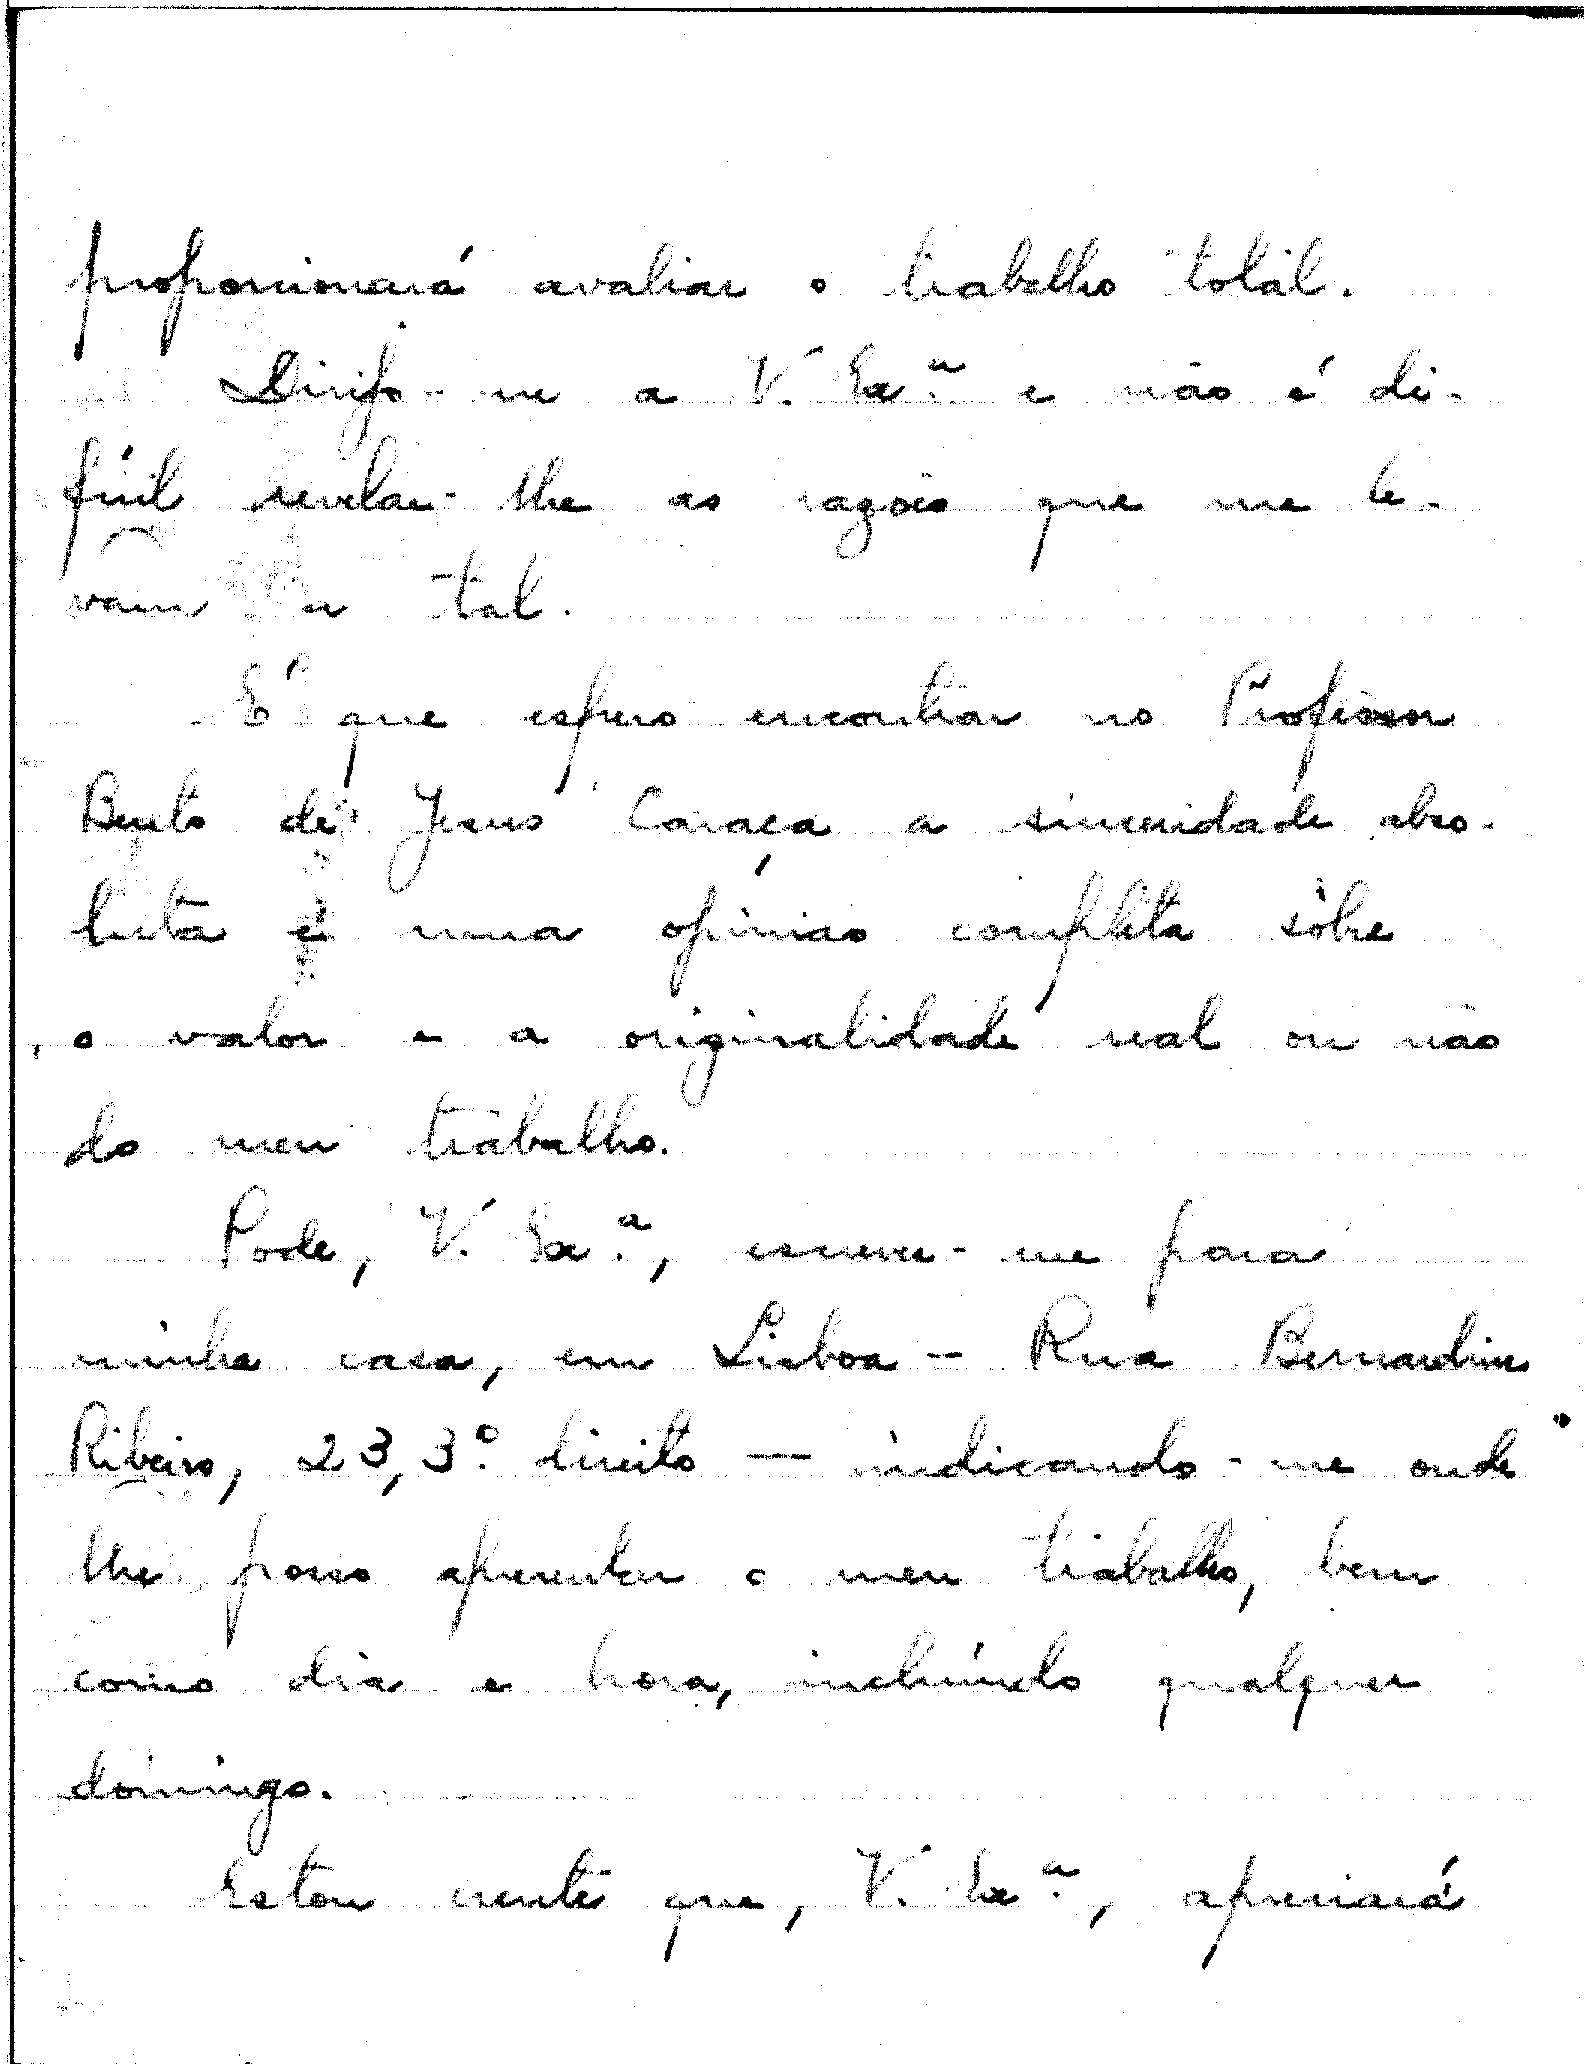 proporcionará avaliar o trabalho total.
Dirijo-me a V. Exª e não é di-
fícil revelar-lhe as razões que me le-
vam a tal.
É que espero encontrar no Professor
Bento de Jesus Caraça a sinceridade abso-
luta e uma opinião completa sôbre
o valor e a originalidade real ou não
do meu trabalho.
Pode, V. Ex.ª, escrever-me para
minha casa, em Lisboa - Rua Bernardim
Ribeiro, 23, 3.º direito — indicando-me onde
lhe posso apresentar o meu trabalho, bem
como dia e hora, incluíndo qualquer
domingo.
Estou crente que, V. Ex.ª, apreciará